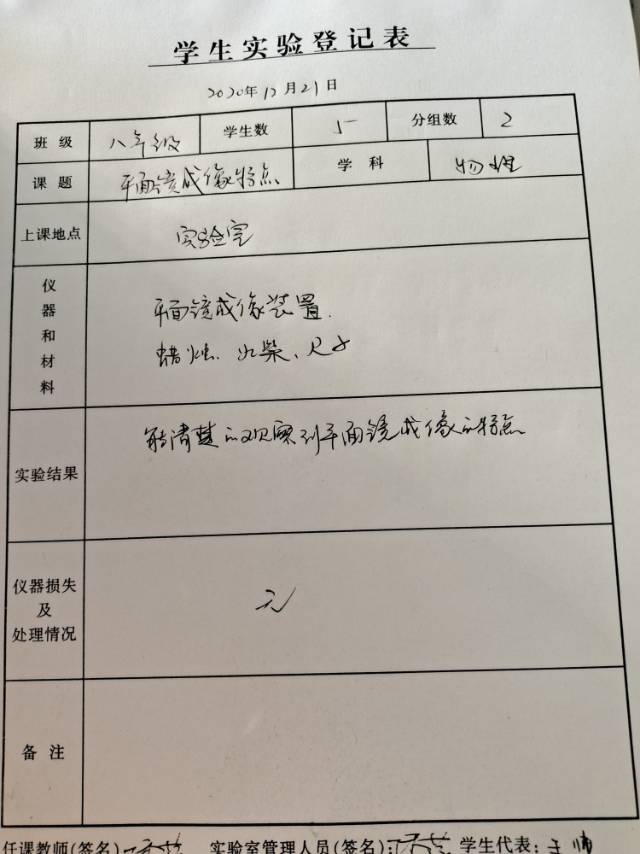 学生实验登记表
2020年12月21日
班级 八年级 学生数 5 分组数 2
课题 平面镜成像特点 学科 物理
上课地点 实验室
仪器和材料 平面镜成像装置.
蜡烛、火柴、尺子
实验结果 能清楚的观察到平面镜成像的特点
仪器损失及处理情况 无
备注
任课教师(签名) 实验室管理人员(签名) 学生代表:王